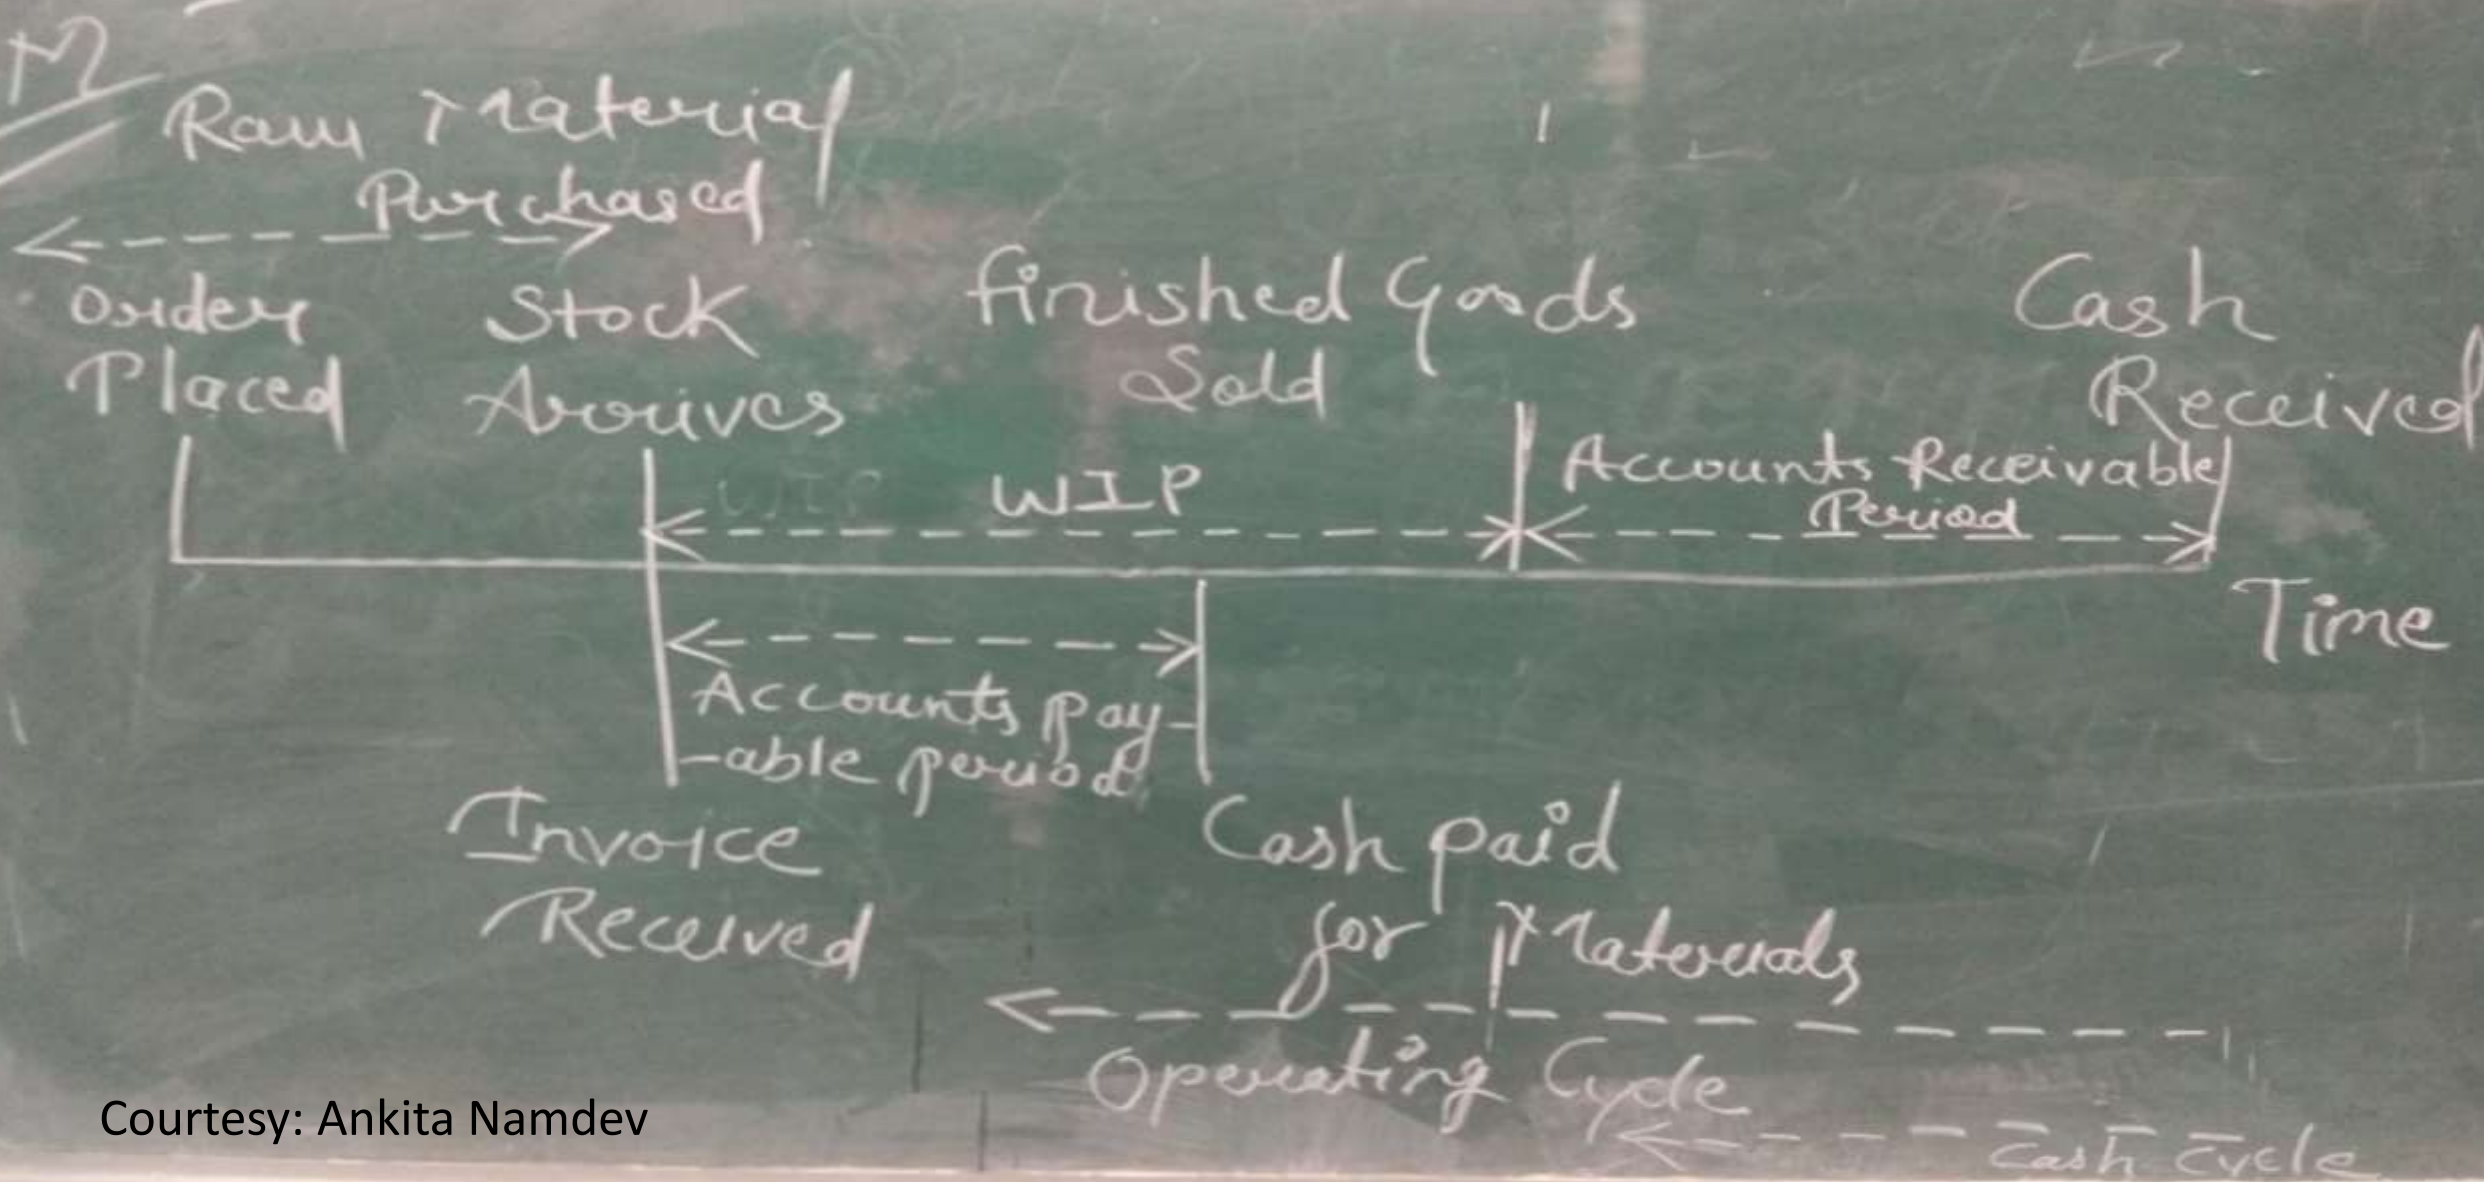 Raw Material
Purchased
Order
Placed
Stock
Arrives
Finished Goods
Sold
Cash
Received
WIP
WIP
Accounts Receivable
Period
Time
Accounts pay-
-able period
Invoice
Received
Cash paid
for Materials
Operating Cycle
Cash Cycle
Courtesy: Ankita Namdev